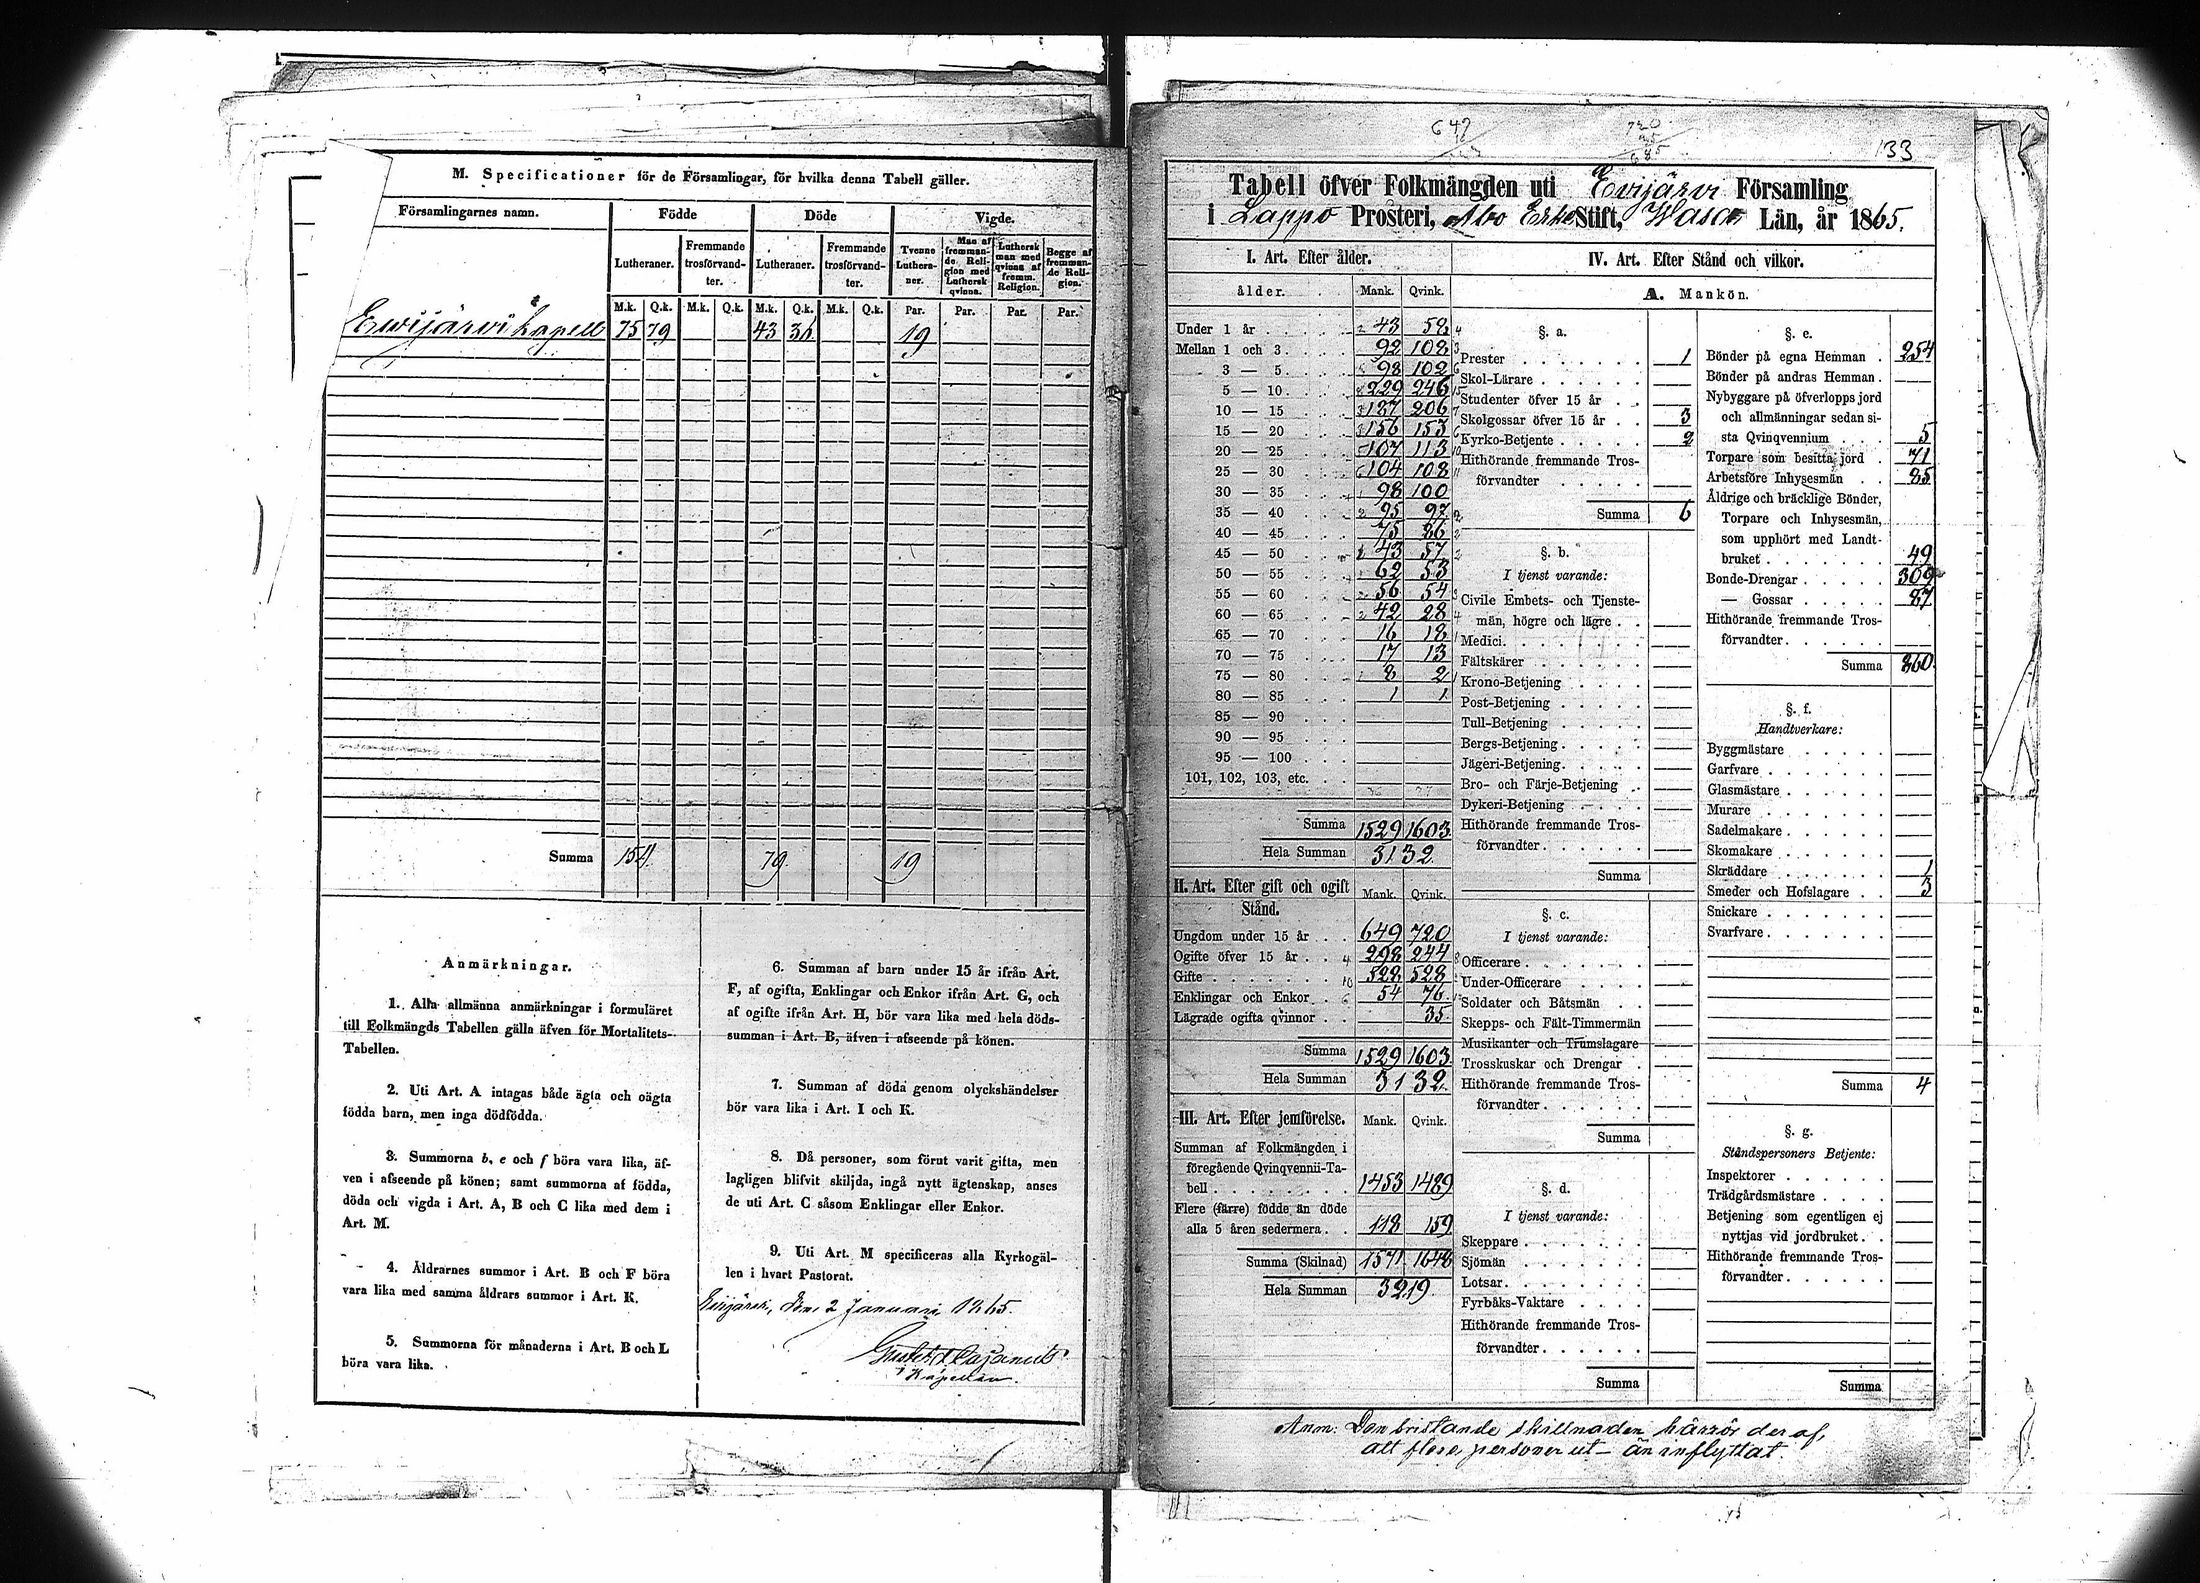 M. Specificationer för de Församlingar, för hvilka denna Tabell gäller.
Församlingarnes namn. Födde Döde Vigde.
Lutheraner. Fremmande trosförvandter. Lutheraner. Fremmande trosförvandter. Tvenne Lutheraner. Man af fremmande Religion med Luthersk qvinna. Luthersk man med qvinna af fremm. Religion. Begge af fremmande Religion.
M.k. Q.k. M.k. Q.k. M.k. Q.k. M.k. Q.k. Par. Par. Par. Par.
Ewijärvi kapell 75 79 43 36 19
Summa 154 79 19
Anmärkningar.
1. Alla allmänna anmärkningar i formuläret
till Folkmängds Tabellen gälla äfven för Mortalitets-
Tabellen.
2. Uti Art. A intagas både ägta och oägta
födda barn, men inga dödfödda.
3. Summorna b, e och f böra vara lika, äf-
ven i afseende på könen; samt summorna af födda,
döda och vigda i Art. A, B och C lika med dem i
Art. M.
4. Åldrarnes summor i Art. B och F böra
vara lika med samma åldrars summor i Art. K.
5. Summorna för månaderna i Art. B och L
böra vara lika.
6. Summan af barn under 15 år ifrån Art.
F, af ogifta, Enklingar och Enkor ifrån Art. G, och
af ogifte ifrån Art. H, bör vara lika med hela döds-
summan i Art. B, äfven i afseende på könen.
7. Summan af döda genom olyckshändelser
bör vara lika i Art. I och K.
8. Då personer, som förut varit gifta, men
lagligen blifvit skiljda, ingå nytt ägtenskap, anses
de uti Art. C såsom Enklingar eller Enkor.
9. Uti Art. M specificeras alla Kyrkogäl-
len i hvart Pastorat.
Evijärvi, den 2 Januari 1865.
Kapellan.
649
720
35
685
133
Tabell öfver Folkmängden uti Evijärvi Församling
i Lappo Prosteri, Åbo Erke Stift, Wasa Län, år 1865.
I. Art. Efter ålder.
ålder. Mank. Qvink.
Under 1 år 43 58
Mellan 1 och 3 92 108
3 — 5 98 102
5 — 10 229 246
10 — 15 187 206
15 — 20 156 153
20 — 25 107 113
25 — 30 104 108
30 — 35 98 100
35 — 40 95 97
40 — 45 75 86
45 — 50 43 57
50 — 55 62 53
55 — 60 56 54
60 — 65 42 28
65 — 70 16 18
70 — 75 17 13
75 — 80 8 2
80 — 85 1 1
85 — 90
90 — 95
95 — 100
101, 102, 103, etc.
Summa 1529 1603
Hela Summan 3132
II. Art. Efter gift och ogift Stånd. Mank. Qvink.
Ungdom under 15 år 649 720
Ogifte öfver 15 år 298 244
Gifte 528 528
Enklingar och Enkor 54 76
Lägrade ogifta qvinnor 35
Summa 1529 1603
Hela Summan 3132
III. Art. Efter jemförelse. Mank. Qvink.
Summan af Folkmängden i
föregående Qvinqvennii-Ta-
bell 1453 1489
Flere (färre) födde än döde
alla 5 åren sedermera 118 159
Summa (Skilnad) 1571 1648
Hela Summan 3219
IV. Art. Efter Stånd och vilkor.
A. Mankön.
§. a.
Prester 1
Skol-Lärare
Studenter öfver 15 år
Skolgossar öfver 15 år 3
Kyrko-Betjente 2
Hithörande fremmande Tros-
förvandter
Summa 6
§. b.
I tjenst varande:
Civile Embets- och Tjenste-
män, högre och lägre
Medici
Fältskärer
Krono-Betjening
Post-Betjening
Tull-Betjening
Bergs-Betjening
Jägeri-Betjening
Bro- och Färje-Betjening
Dykeri-Betjening
Hithörande fremmande Tros-
förvandter
Summa
§. c.
I tjenst varande:
Officerare
Under-Officerare
Soldater och Båtsmän
Skepps- och Fält-Timmermän
Musikanter och Trumslagare
Trosskuskar och Drengar
Hithörande fremmande Tros-
förvandter
Summa
§. d.
I tjenst varande:
Skeppare
Sjömän
Lotsar
Fyrbåks-Vaktare
Hithörande fremmande Tros-
förvandter
Summa
§. e.
Bönder på egna Hemman 254
Bönder på andras Hemman
Nybyggare på öfverlopps jord
och allmänningar sedan si-
sta Qvinqvennium 5
Torpare som besitta jord 71
Arbetsföre Inhysesmän 85
Åldrige och bräcklige Bönder,
Torpare och Inhysesmän,
som upphört med Landt-
bruket 49
Bonde-Drengar 309
— Gossar 87
Hithörande fremmande Tros-
förvandter
Summa 860
§. f.
Handtverkare:
Byggmästare
Garfvare
Glasmästare
Murare
Sadelmakare
Skomakare
Skräddare 1
Smeder och Hofslagare 3
Snickare
Svarfvare
Summa 4
§. g.
Ståndspersoners Betjente:
Inspektorer
Trädgårdsmästare
Betjening som egentligen ej
nyttjas vid jordbruket
Hithörande fremmande Tros-
förvandter
Summa
Anm: Den bristande skillnaden härrör deraf,
att flera personer ut- än inflyttat.